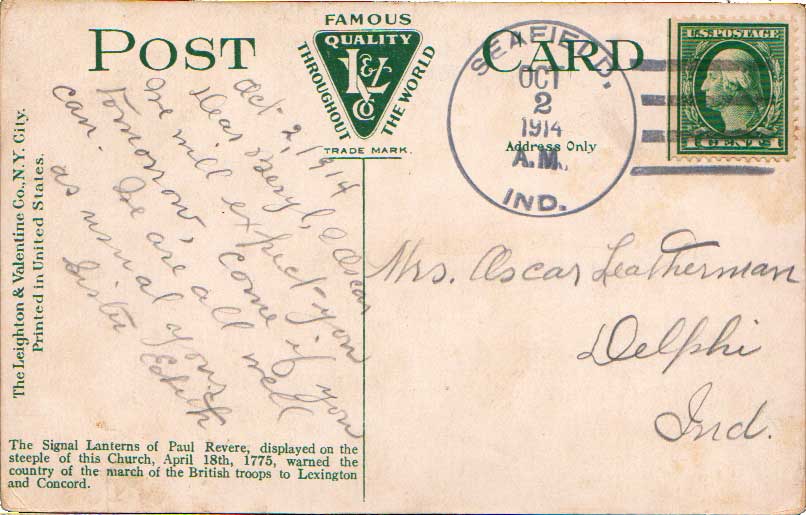 POST CARD
FAMOUS
QUALITY
L & V Co
THROUGHOUT THE WORLD
TRADE MARK.
Address Only
SEAFIELD,
OCT
2
1914
A.M.
IND.
U.S. POSTAGE
1 CENT 1
Oct 2, 1914
Dear Beryl, & Oscar
We will expect you
tomorrow, come if you
can. We are all well
as usual yours
Sister Edith
Mrs. Oscar Leatherman
Delphi
Ind.
The Leighton & Valentine Co., N.Y. City.
Printed in United States.
The Signal Lanterns of Paul Revere, displayed on the
steeple of this Church, April 18th, 1775, warned the
country of the march of the British troops to Lexington
and Concord.